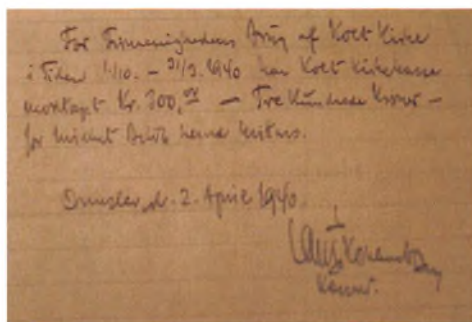 For Frimenighedens Brug af Kolt Kirke
i Tiden 1/10. – 31/3. 1940 har Kolt Kirkekasse
modtaget Kr. 300,00 — Tre Hundrede Kroner –
for hvilket Beløb herved kvitteres.
Ormslev, d. 2. April 1940.
Kasserer.